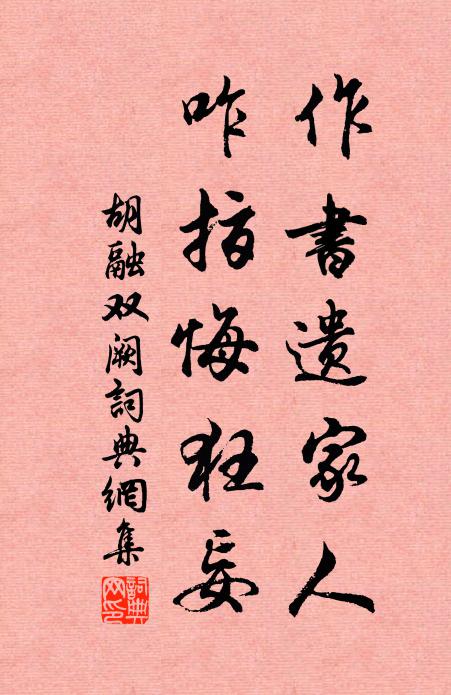 作書遺家人
咋指悔狂妄
胡融双阙詞典網集
詞典网印